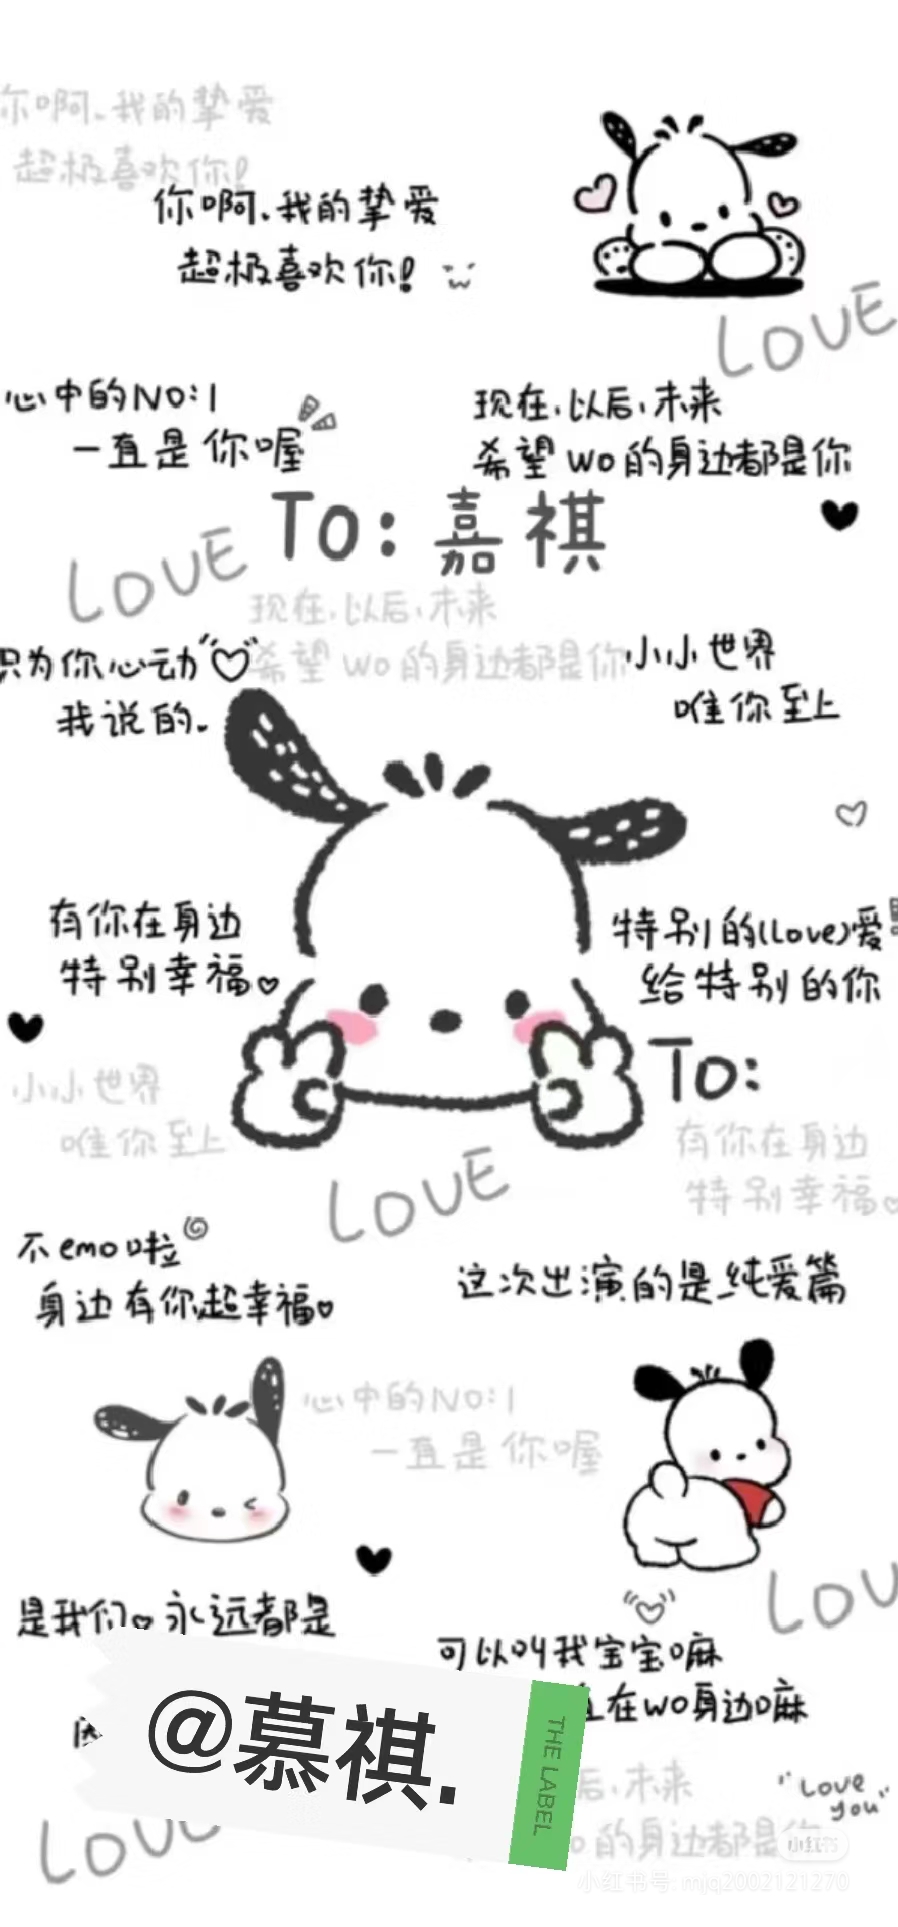 你啊.我的挚爱
超极喜欢你!
你啊.我的挚爱
超极喜欢你!
LOVE
心中的NO:1
一直是你喔
现在,以后,未来
希望wo的身边都是你
To: 嘉祺
LOVE
现在,以后,未来
希望wo的身边都是你
只为你心动
我说的.
小小世界
唯你至上
有你在身边
特别幸福
特别的(Love)爱
给特别的你
To:
小小世界
唯你至上
有你在身边
特别幸福
LOVE
不emo啦
身边有你超幸福
这次出演的是纯爱篇
心中的NO:1
一直是你喔
LOV
是我们 永远都是
可以叫我宝宝嘛
在wo身边嘛
@慕祺.
THE LABEL
后,未来
的身边都是你
"Love
you"
LOVE
小红书
小红书号: mjq2002121270